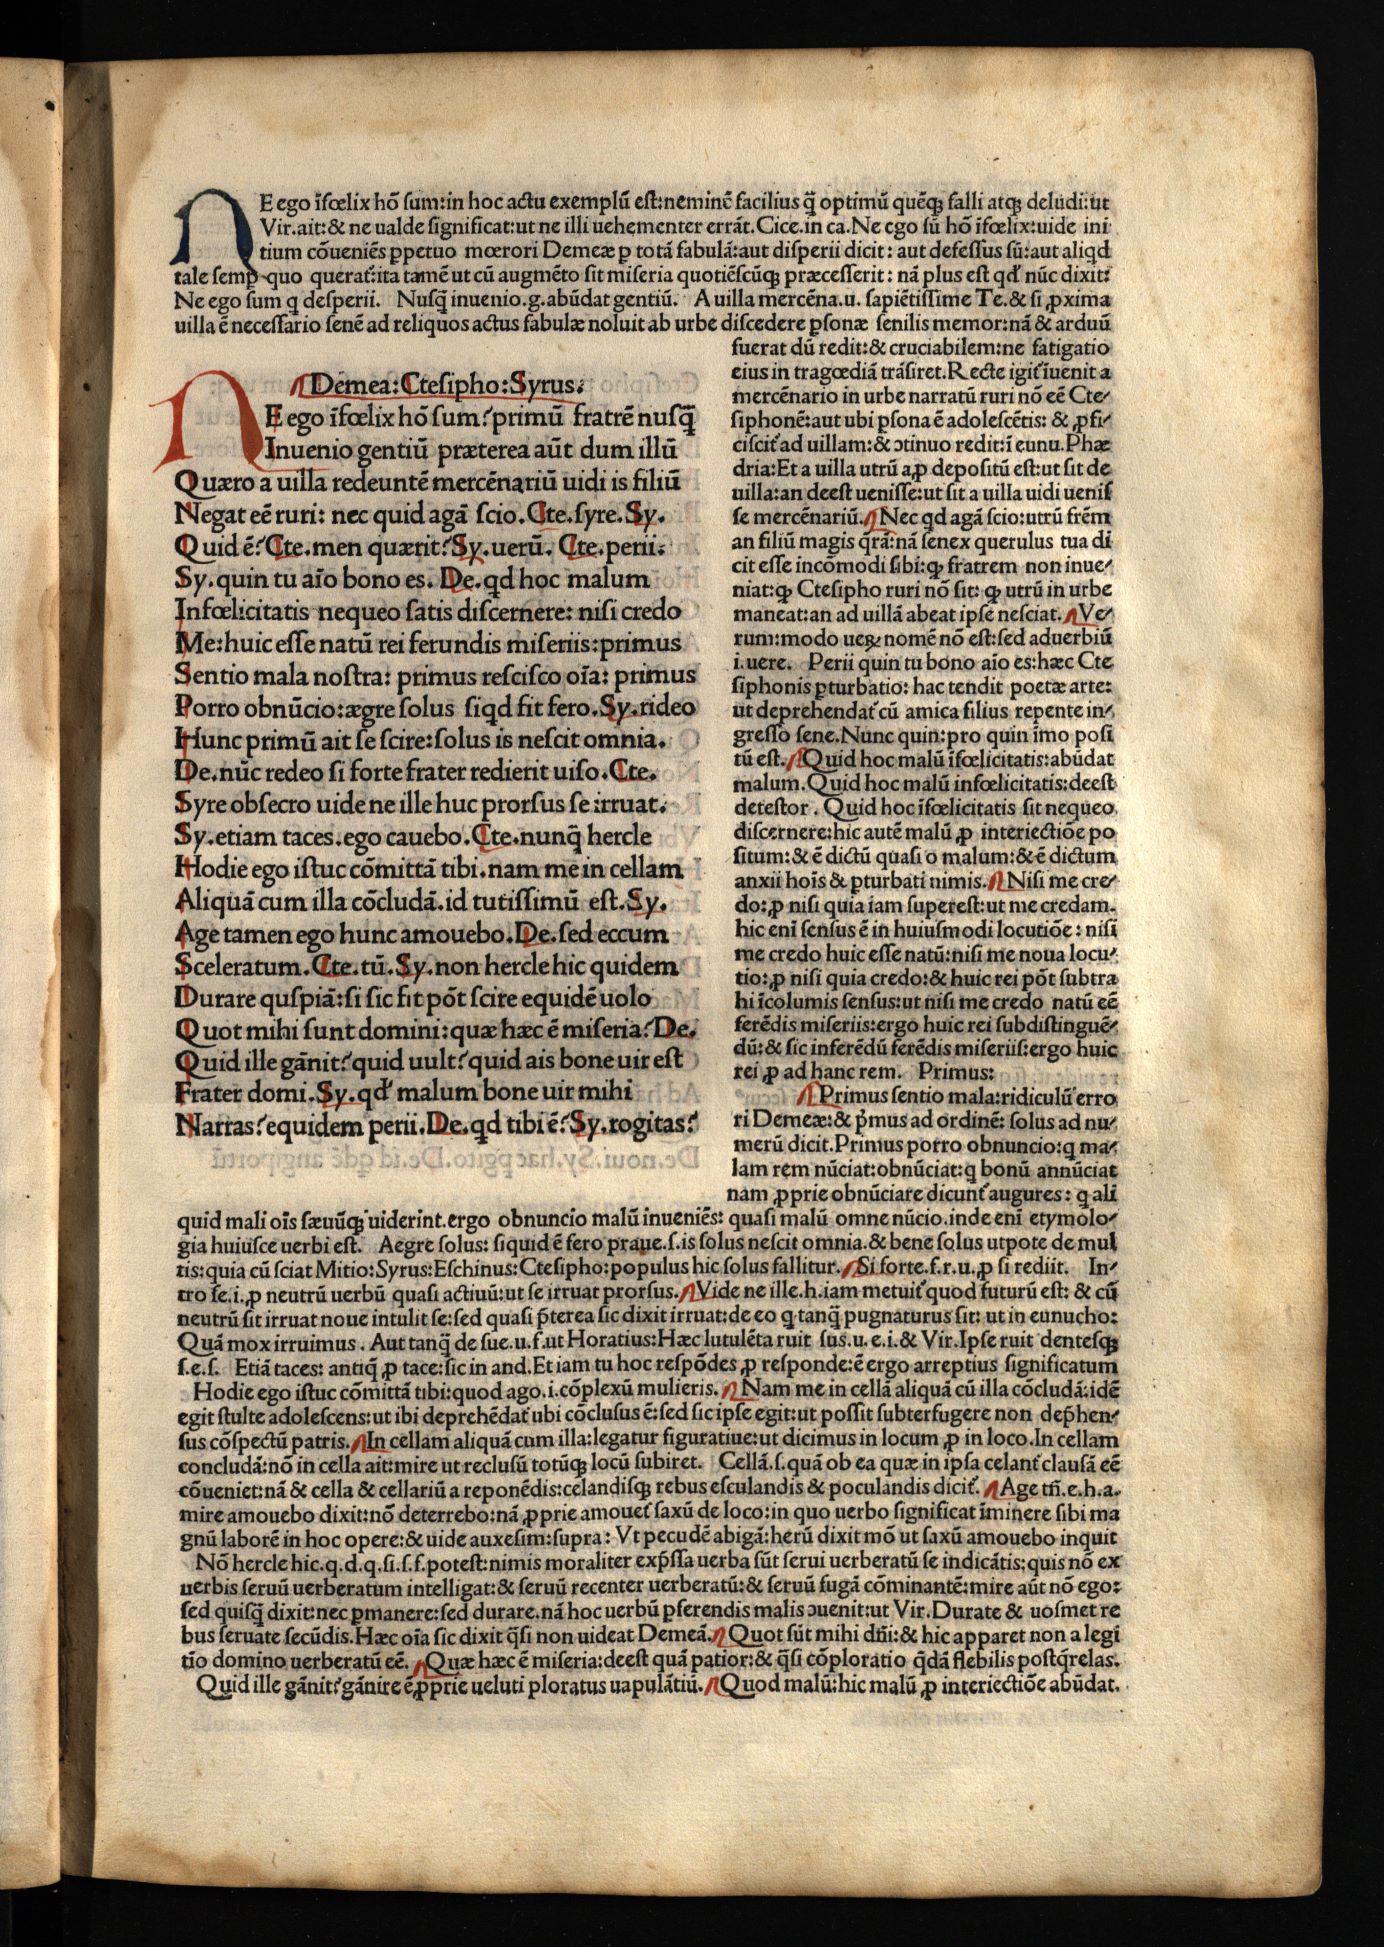 NE ego īfœlix hō sum:in hoc actu exemplū est:neminē facilius q̄ optimū quēq; falli atq; deludi:ut
Vir.ait:& ne ualde significat:ut ne illi uehementer errāt.Cice.in ca.Ne ego sū hō īfœlix:uide ini
tium cōueniēs ꝑpetuo mœrori Demeæ ꝑ totā fabulā:aut disperii dicit: aut defessus sū:aut aliqd
tale semꝑ quo querat᷑:ita tamē ut cū augmēto sit miseria quotiēscūq; præcesserit: nā plus est qđ nūc dixit:
Ne ego sum q desperii. Nusq̄ inuenio.g.abūdat gentiū. A uilla mercēna.u. sapiētissime Te.& si ꝓxima
uilla ē necessario senē ad reliquos actus fabulæ noluit ab urbe discedere ꝑsonæ senilis memor:nā & arduū
fuerat dū redit:& cruciabilem:ne fatigatio
eius in tragœdiā trāsiret.Recte igit᷑ īuenit a
mercēnario in urbe narratū ruri nō eē Cte-
siphonē:aut ubi ꝑsona ē adolescētis: & ꝓfi-
ciscit᷑ ad uillam:& ↄtinuo redit:ī eunu.Phæ
dria:Et a uilla utrū a ꝓ depositū est:ut sit de
uilla:an deest uenisse:ut sit a uilla uidi uenis
se mercēnariū. Nec qd agā scio:utrū frēm
an filiū magis q̄rā:nā senex querulus tua di
cit esse incōmodi sibi:qꝫ fratrem non inue-
niat:qꝫ Ctesipho ruri nō sit: qꝫ utrū in urbe
maneat:an ad uillā abeat ipse nesciat. Ve-
rum:modo ueꝝ nomē nō est:sed aduerbiū
i.uere. Perii quin tu bono aīo es:hæc Cte
siphonis ꝑturbatio: hac tendit poetæ arte:
ut deprehendat᷑ cū amica filius repente in-
gresso sene.Nunc quin:pro quin īmo posi
tū est. Quid hoc malū īfœlicitatis:abūdat
malum.Quid hoc malū infœlicitatis:deest
detestor. Quid hoc īfœlicitatis sit nequeo
discernere:hic autē malū ꝓ interiectiōe po
situm:& ē dictū quasi o malum:& ē dictum
anxii hoīs & ꝑturbati nimis. Nisi me cre-
do:ꝓ nisi quia iam superest:ut me credam.
hic enī sensus ē in huiusmodi locutiōe: nisi
me credo huic esse natū:nisi me noua locu-
tio:ꝓ nisi quia credo:& huic rei pōt subtra
hi īcolumis sensus:ut nisi me credo natū eē
ferēdis miseriis:ergo huic rei subdistinguē-
dū:& sic inferēdū ferēdis miseriis:ergo huic
rei ꝓ ad hanc rem. Primus:
Primus sentio mala:ridiculū erro
ri Demeæ:& p̄mus ad ordinē: solus ad nu-
merū dicit.Primus porro obnuncio:q ma-
lam rem nūciat:obnūciat:q bonū annūciat
nam ꝓprie obnūciare dicunt᷑ augures: q ali
Demea:Ctesipho:Syrus.
NE ego īfœlix hō sum?primū fratrē nusq̄
Inuenio gentiū præterea aūt dum illū
Quæro a uilla redeuntē mercēnariū uidi is filiū
Negat eē ruri: nec quid agā scio.Cte.syre.Sy.
Quid ē?Cte.men quærit?Sy.uerū. Cte.perii.
Sy.quin tu aīo bono es. De.qd hoc malum
Infœlicitatis nequeo satis discernere: nisi credo
Me:huic esse natū rei ferundis miseriis:primus
Sentio mala nostra: primus rescisco oīa: primus
Porro obnūcio:ægre solus siqd fit fero.Sy.rideo
Hunc primū ait se scire:solus is nescit omnia.
De.nūc redeo si forte frater redierit uiso.Cte.
Syre obsecro uide ne ille huc prorsus se irruat.
Sy.etiam taces.ego cauebo.Cte.nunq̄ hercle
Hodie ego istuc cōmittā tibi.nam me in cellam
Aliquā cum illa cōcludā.id tutissimū est.Sy.
Age tamen ego hunc amouebo.De.sed eccum
Sceleratum.Cte.tū.Sy.non hercle hic quidem
Durare quspiā:si sic fit pōt scire equidē uolo
Quot mihi sunt domini:quæ hæc ē miseria?De.
Quid ille gānit?quid uult?quid ais bone uir est
Frater domi.Sy.qđ malum bone uir mihi
Narras?equidem perii.De.qd tibi ē?Sy.rogitas?
quid mali oīs sæuūq; uiderint.ergo obnuncio malū inueniēs: quasi malū omne nūcio.inde enī etymolo-
gia huiusce uerbi est. Aegre solus: siquid ē fero praue.s.is solus nescit omnia.& bene solus utpote de mul
tis:quia cū sciat Mitio:Syrus:Eschinus:Ctesipho:populus hic solus fallitur. Si forte.f.r.u.ꝓ si rediit. In-
tro se.i.ꝓ neutrū uerbū quasi actiuū:ut se irruat prorsus. Vide ne ille.h.iam metuit᷑ quod futurū est: & cū
neutrū sit irruat noue intulit se:sed quasi p̄terea sic dixit irruat:de eo q tanq̄ pugnaturus sit: ut in eunucho:
Quā mox irruimus. Aut tanq̄ de sue.u.f.ut Horatius:Hæc lutulēta ruit sus.u.e.i.& Vir.Ipse ruit dentesq;
s.e.s. Etiā taces: antiq̄ ꝓ tace:sic in and.Et iam tu hoc respōdes ꝓ responde:ē ergo arreptius significatum
Hodie ego istuc cōmittā tibi:quod ago.i.cōplexū mulieris. Nam me in cellā aliquā cū illa cōcludā:idē
egit stulte adolescens:ut ibi deprehēdat᷑ ubi cōclusus ē:sed sic ipse egit:ut possit subterfugere non dep̄hen-
sus cōspectū patris. In cellam aliquā cum illa:legatur figuratiue:ut dicimus in locum ꝓ in loco.In cellam
concludā:nō in cella ait:mire ut reclusū totūq; locū subiret. Cellā.s.quā ob ea quæ in ipsa celant᷑ clausā eē
cōueniet:nā & cella & cellariū a reponēdis:celandisq; rebus esculandis & poculandis dicit᷑. Age tñ.e.h.a.
mire amouebo dixit:nō deterrebo:nā ꝓprie amouet᷑ saxū de loco:in quo uerbo significat īminere sibi ma
gnū laborē in hoc opere:& uide auxesim:supra: Vt pecudē abigā:herū dixit mō ut saxū amouebo inquit
Nō hercle hic.q.d.q.si.s.f.potest:nimis moraliter exp̄ssa uerba sūt serui uerberatū se indicātis:quis nō ex
uerbis seruū uerberatum intelligat:& seruū recenter uerberatū:& seruū fugā cōminantē:mire aūt nō ego:
sed quisq̄ dixit:nec ꝑmanere:sed durare.nā hoc uerbū ꝑferendis malis ↄuenit:ut Vir.Durate & uosmet re
bus seruate secūdis.Hæc oīa sic dixit q̄si non uideat Demeā. Quot sūt mihi dñi:& hic apparet non a legī
tīo domino uerberatū eē. Quæ hæc ē miseria:deest quā patior:& q̄si cōploratio q̄dā flebilis postq̄relas.
Quid ille gānit?gānire ē ꝓprie ueluti ploratus uapulātiū. Quod malū:hic malū ꝓ interiectiōe abūdat.